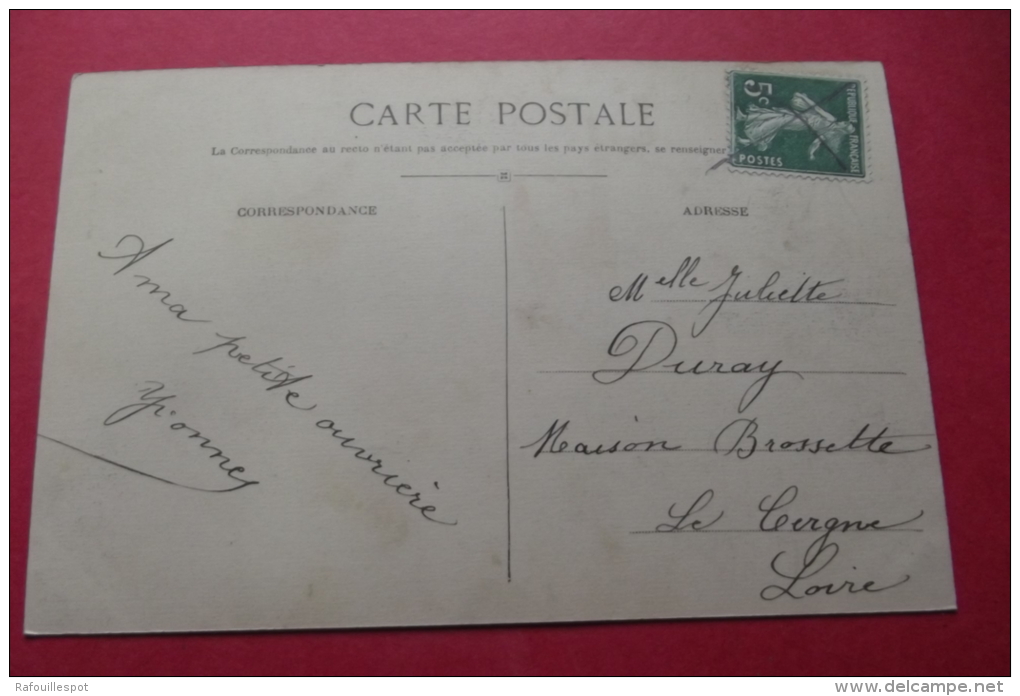 CARTE POSTALE
La Correspondance au recto n'étant pas acceptée par tous les pays étrangers, se renseigner
CORRESPONDANCE
ADRESSE
5c
REPUBLIQUE FRANÇAISE
POSTES
A ma petite ouvrière
Yvonne
Melle Juliette
Duray
Maison Brossette
Le Cergne
Loire
Rafouillespot
www.delcampe.net